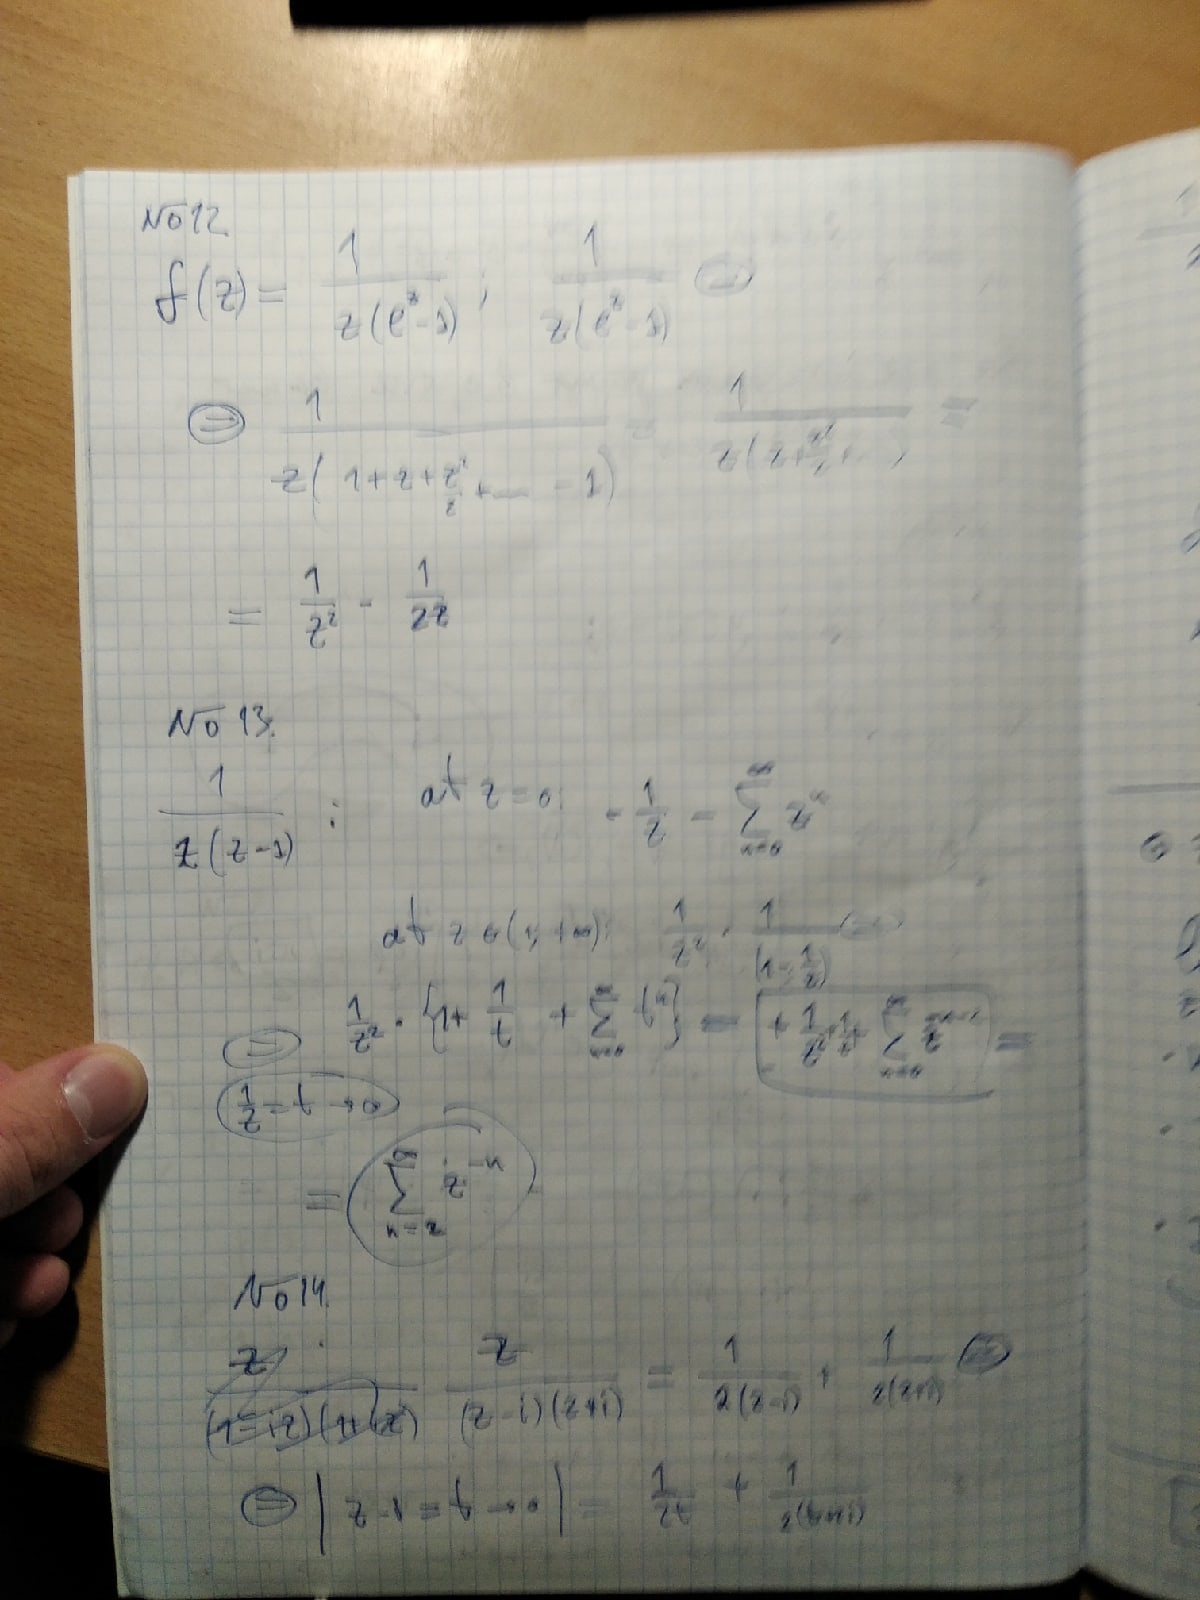 №12
f(z) = 1/(z(e^z-1)); 1/(z(e^z-1)) =
= 1/(z(1+z+z²/2+... -1)) = 1/(z(z+z²/2+...)) =
= 1/z² - 1/2z
№13.
1/(z(z-1)) : at z=0: -1/z - ∑_{n=0}^∞ z^n
at z∈(1;+∞): 1/z² · 1/(1-1/z) =
= 1/z² · {1+ 1/t + ∑_{n=0}^∞ t^n} = + 1/z² + 1/z ∑_{n=0}^∞ =
1/z = t → 0
= ∑_{n=2}^∞ z^{-n}
№14.
z/((z-i)(z+i)) = 1/(2(z-i)) + 1/(2(z+i)) =
= | z-i = t → 0 | = 1/2t + 1/(2(t+2i))